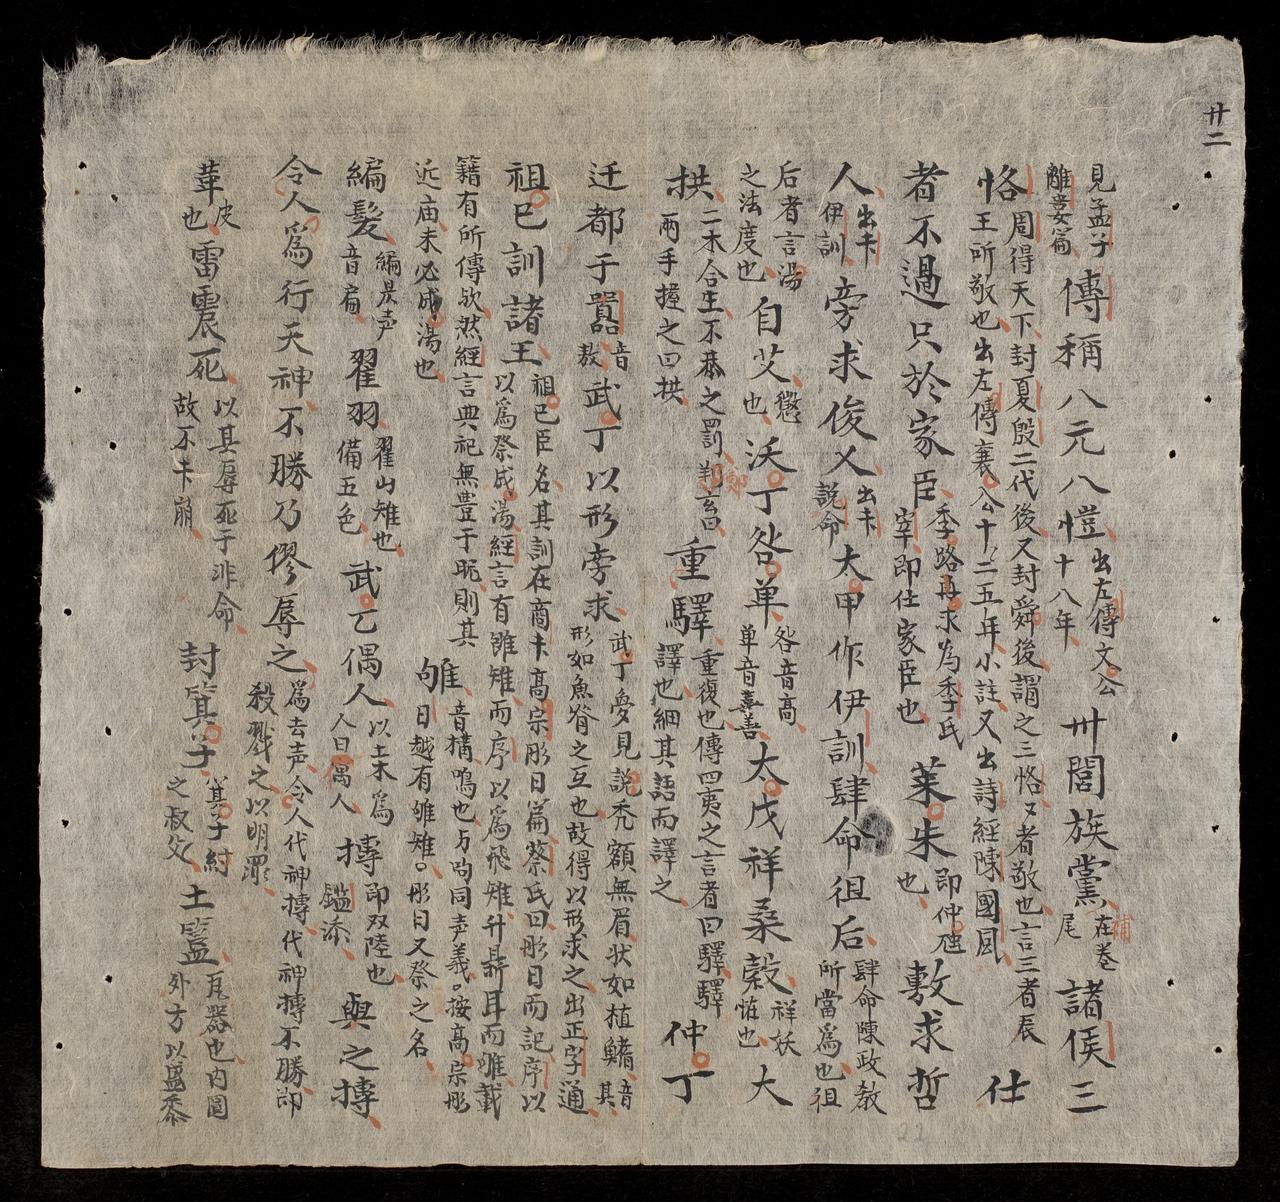 廿二
見孟子離婁篇 傳稱八元八愷 出左傳文公十八年 卅閭族黨 在卷尾 補 諸侯三
恪 周得天下封夏殷二代後又封舜後謂之三恪々者敬也言三者辰王所敬也出左傳襄公十二五年小註又出詩經陳國風 仕
者不過只於家臣 季路冉求為季氏宰即仕家臣也 萊朱 即仲虺也 敷求哲
人 出伊訓 旁求俊乂 出說命 大甲作伊訓肆命徂后 肆命陳政教所當為也徂
后者言湯之法度也 自艾 懲也 沃丁咎单 咎音髙单音善 太戊祥桑榖 祥妖恠也 大
拱 二木合生不恭之罰 兩手握之曰拱 重驛 重復也傳四夷之言者曰驛驛譯也細其語而譯之 仲丁
迁都于嚻 音敖 武丁以形旁求 武丁夢見說秃額無眉状如植鰭音其形如魚脊之互也故得以形求之出正字通
祖已訓諸王 祖已臣名其訓在商高宗肜日篇蔡氏曰肜日而記序以以為祭成湯經言有雖雉而序以為飛雉升鼎耳而雊載
籍有所傳欤然經言典祀無豊于昵則其近庙未必成湯也 雊 音搆鳴也与呴同声義按髙宗肜日越有雊雉肜日又祭之名
編髮 編上声音扁 翟羽 翟山雉也備五色 武乙偶人 以土木為人曰偶人 摶 即双陸也 鑑添 與之摶
令人為行天神不勝乃僇辱之 為去声令人代神摶代神摶不勝即殺戮之以明罪
革 皮也 雷震死 以其辱死于非命故不崩 封箕子 箕子紂之叔父 土簋 瓦器也内圓外方以盛黍